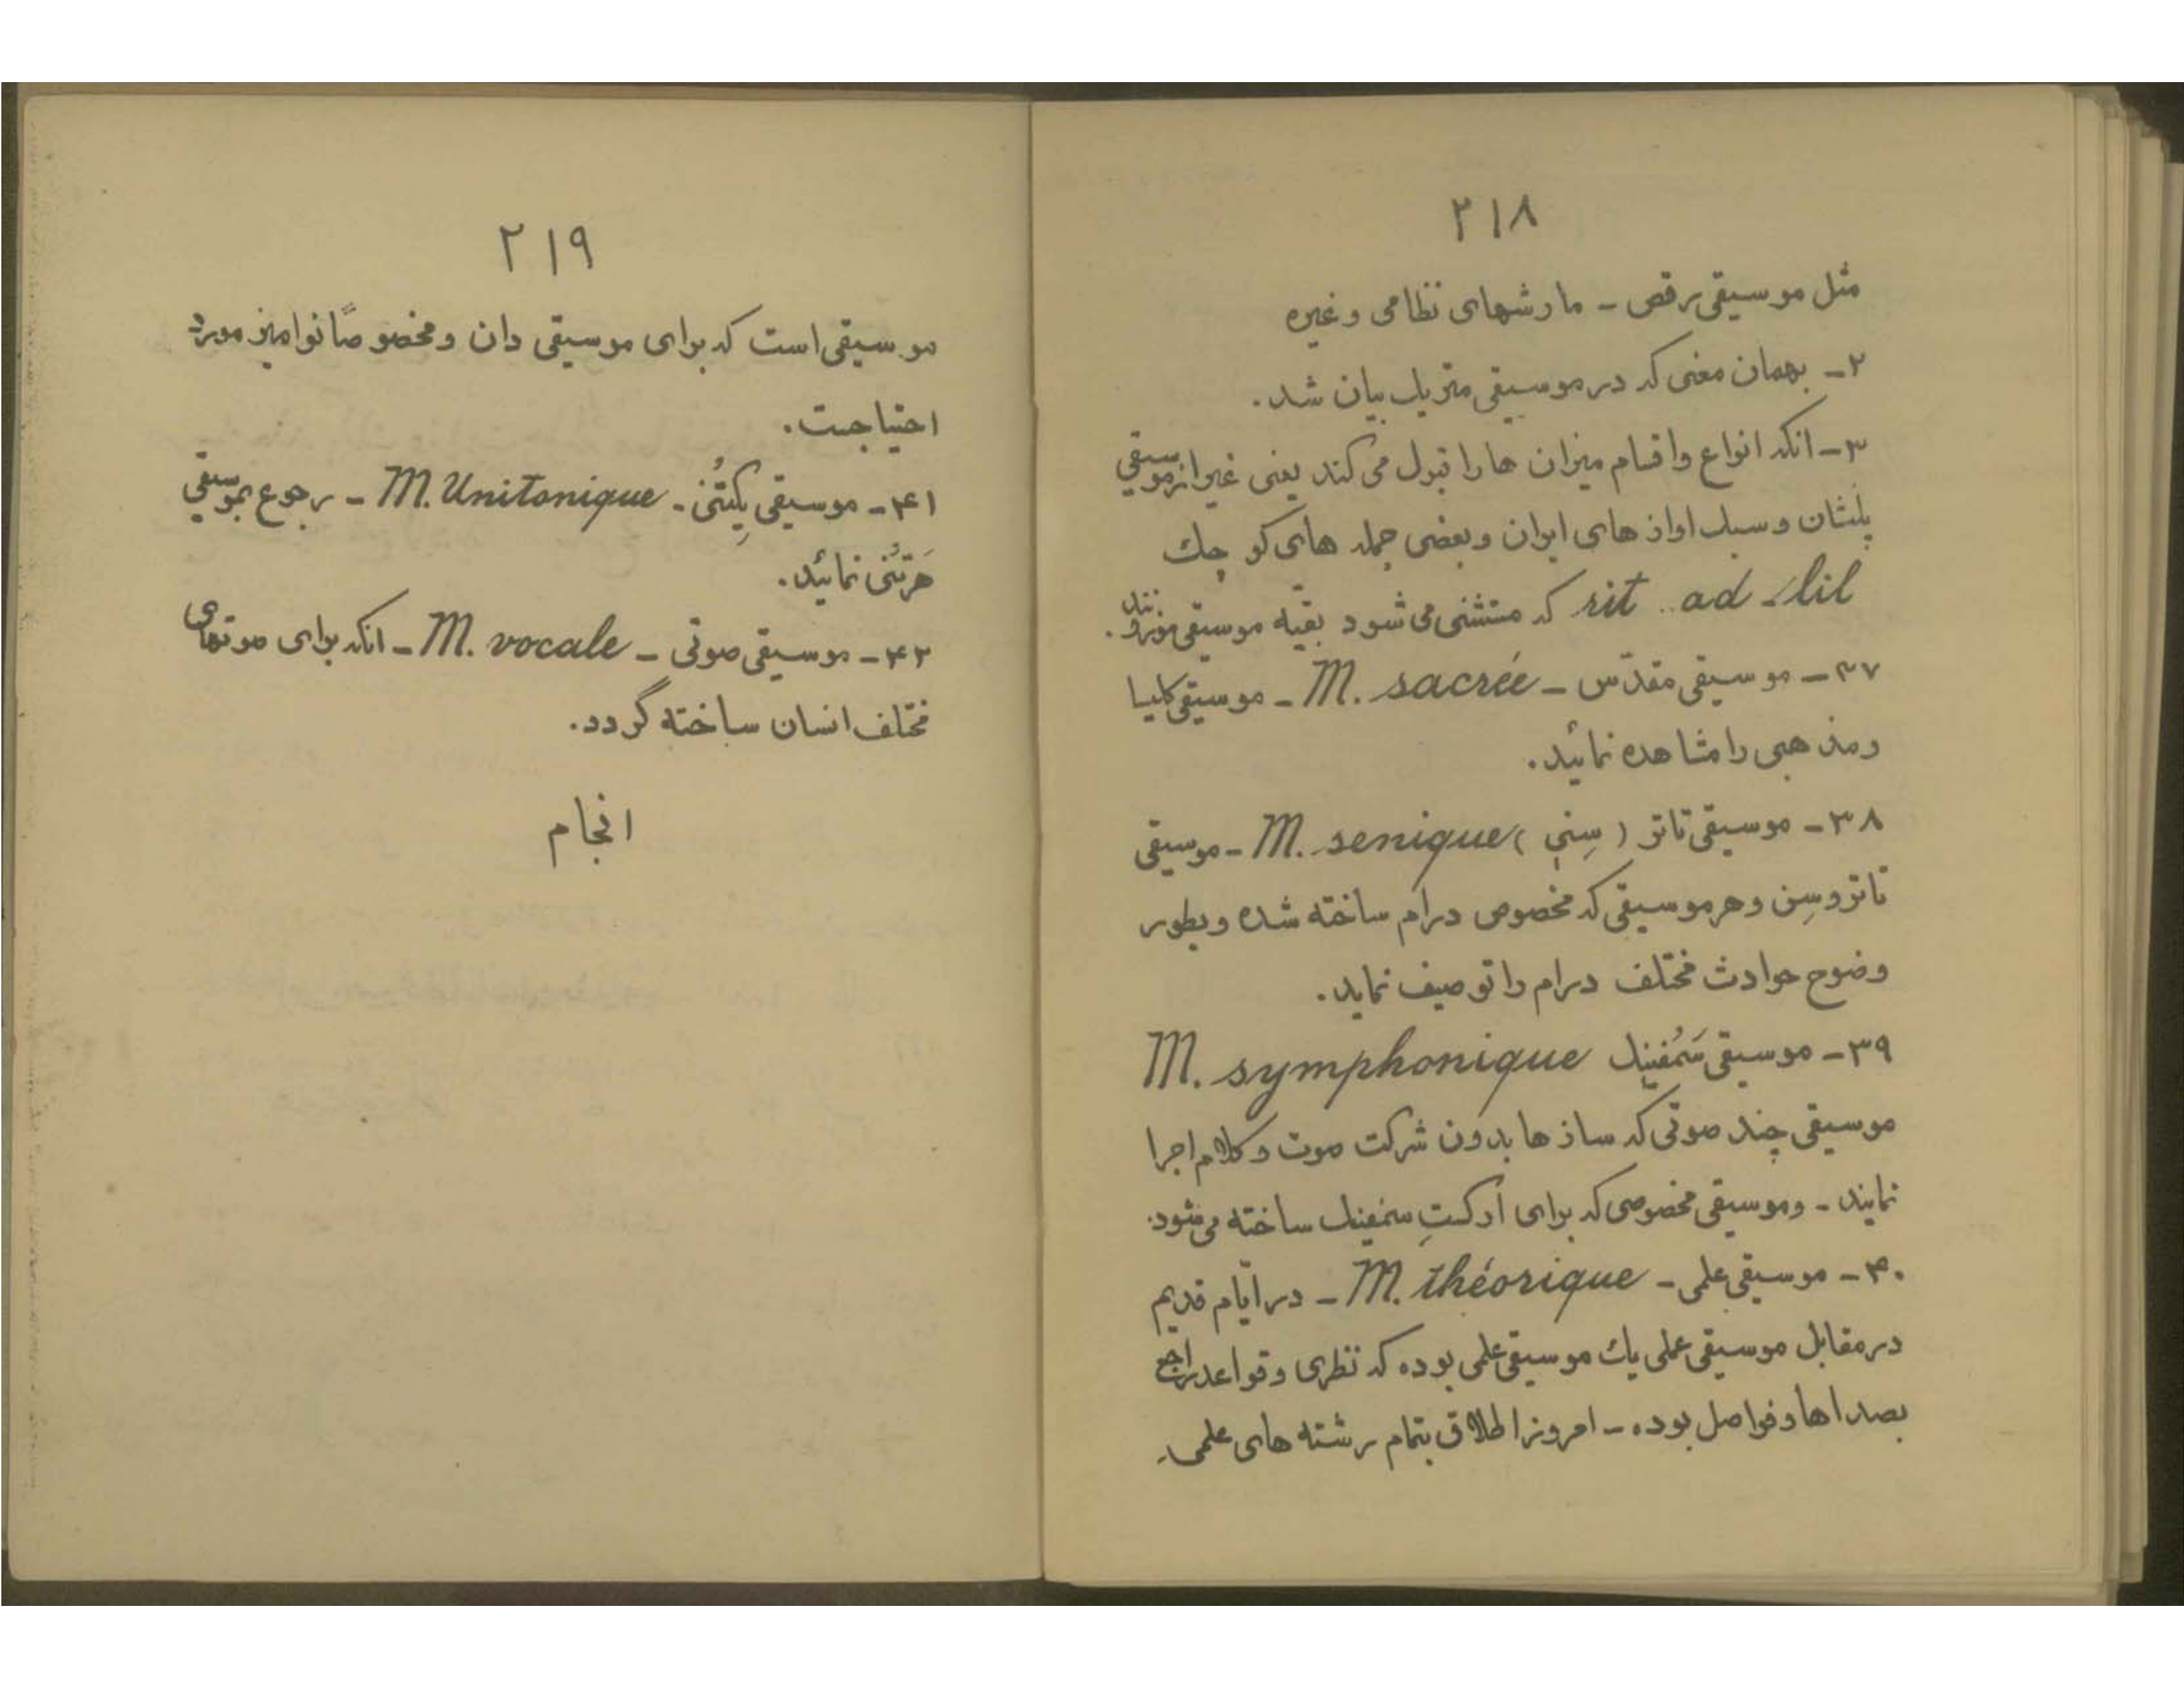 ۲۱۸
مثل موسیقی رقص - مارشهای نظامی و غیره
۲- بهمان معنی که در موسیقی متریک بیان شد.
۳- انکه انواع و اقسام میزان ها را قبول می کند یعنی غیر از موسیقی
پلنشان و سبک اواز های ایران و بعضی جمله های کوچک
rit .. ad - lil که مستثنی می شود بقیّه موسیقی موزونند.
۳۷- موسیقی مقدّس - M. sacrée - موسیقی کلیسا
و مذهبی را مشاهده نمائید.
۳۸- موسیقی تاتر (سِنی) M. senique - موسیقی
تاتر و سِن و هر موسیقی که مخصوص درام ساخته شده و بطور
وضوح حوادث مختلف درام را توصیف نماید.
۳۹- موسیقی سَمُفنیک M. symphonique
موسیقی چند صوتی که ساز ها بدون شرکت صوت و کلام اجرا
نمایند - و موسیقی مخصوصی که برای ارکستِ سمفنیک ساخته می شود.
۴۰- موسیقی علمی - M. théorique - در ایّام قدیم
در مقابل موسیقی عملی یک موسیقی علمی بوده که نظری و قواعد راجع
بصداها و فواصل بوده - امروز اطلاق بتمام رشته های علمی
۲۱۹
موسیقی است که برای موسیقی دان و مخصوصاً نوامیز مورد
احتیاجست.
۴۱- موسیقی یِکتُنی - M. Unitonique - رجوع بموسیقی
هَرتُنی نمائید.
۴۲- موسیقی صوتی - M. vocale - انکه برای صوتهای
مختلف انسان ساخته گردد.
انجام